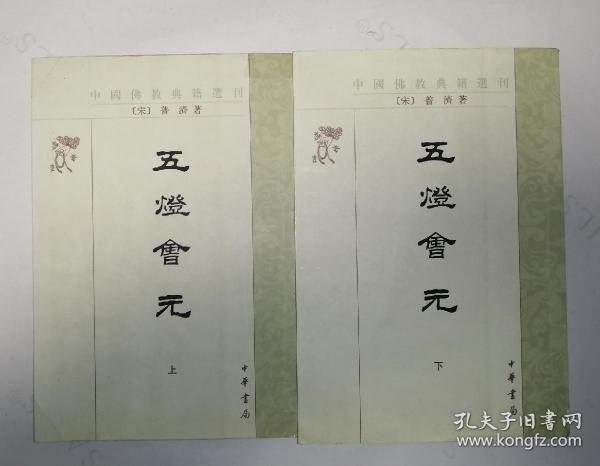 中國佛教典籍選刊
〔宋〕普濟著
五燈會元
上
中華書局
中國佛教典籍選刊
〔宋〕普濟著
五燈會元
下
中華書局
孔夫子旧书网
www.kongfz.com